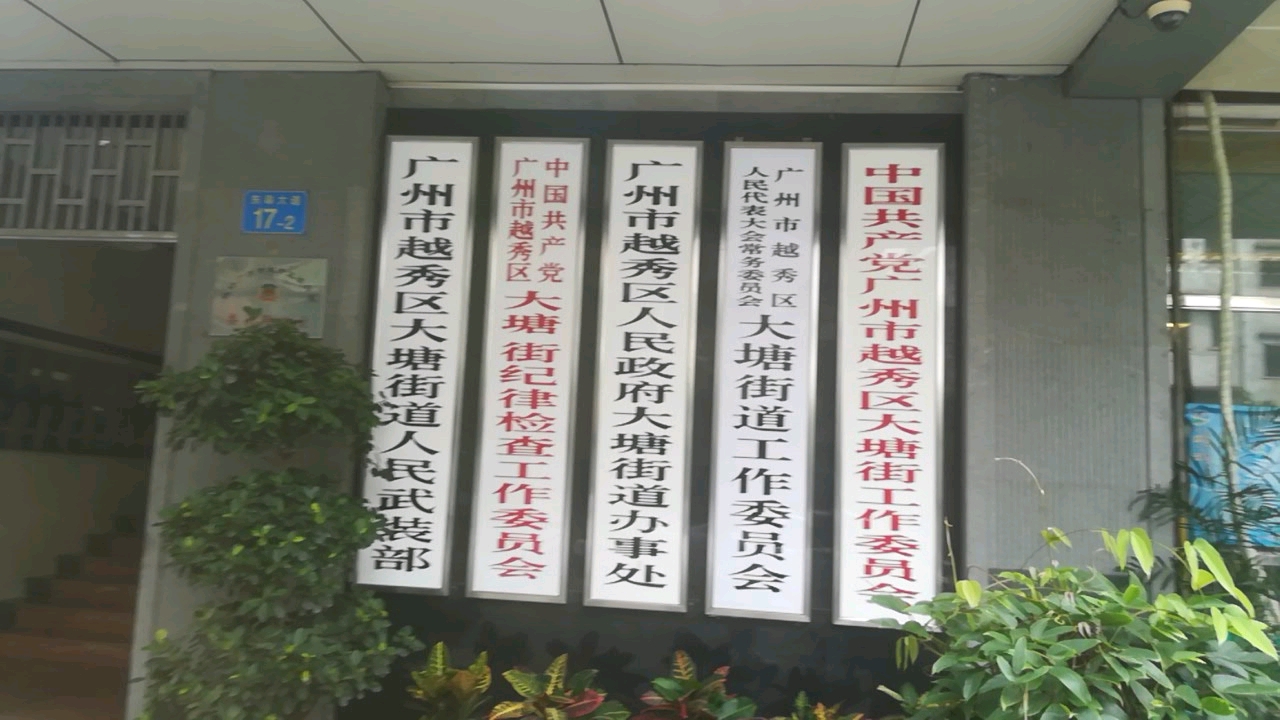 广州市越秀区大塘街道人民武装部
中国共产党
广州市越秀区
大塘街纪律检查工作委员会
广州市越秀区人民政府大塘街道办事处
广州市越秀区
人民代表大会常务委员会
大塘街道工作委员会
中国共产党广州市越秀区大塘街工作委员会
17-2